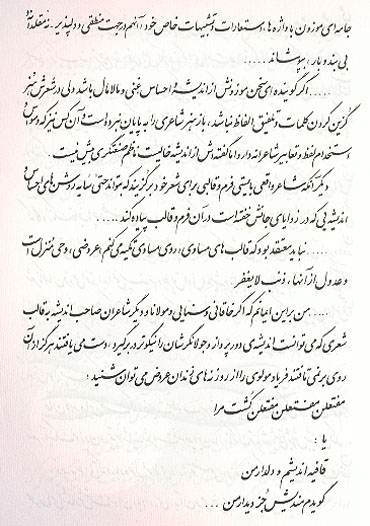 جامه‌ای موزون با واژه‌ها، استعارات و تشبیهات خاص خود، آنهم در جهت منطقی و دلپذیر. نه مقلدانه
بی‌بند و بار، بپوشاند.....
.....اگر گوینده‌ای سخن موزونش از اندیشه و احساس غنی و مالامال باشد ولی در شعرش هنر
گزین کردن کلمات و تلفیق الفاظ نباشد، باز هنر شاعری را به پایان نبرده است و آن کس نیز که وسواس
استخدام لفظ و تعابیر شاعرانه دارد اما گفته‌اش از اندیشه خالیست ناظم صنعتگری بیش نیست.
دیگر آنکه شاعر واقعی بایستی فرم و قالبی برای شعر خود برگزیند که بتواند حتی سایه روشن‌های احساس و
اندیشه‌یی که در زوایای جانش خفته است در آن فرم و قالب پیاده کند.....
.....نباید معتقد بود که قالب‌های مساوی، (روی مساوی تکیه می‌کنم) عروضی، وحی منزل است
و عدول از آنها، ذنب لایغفر
.....من بر این ایمانم که اگر خاقانی و سنایی و مولانا و دیگر شاعران صاحب اندیشه به قالب
شعری که می‌توانست اندیشه‌ی دور پرواز و جولانگرشان را نیکوتر در برگیرد، دست می‌یافتند هرگز از آن
روی برنمی‌تافتند فریاد مولوی را از روزنه‌های زندان عروض می‌توان شنید:
مفتعلن مفتعلن مفتعلن کشت مرا
یا:
قافیه اندیشم و دلدار من
گویدم مندیش جز دیدار من ...